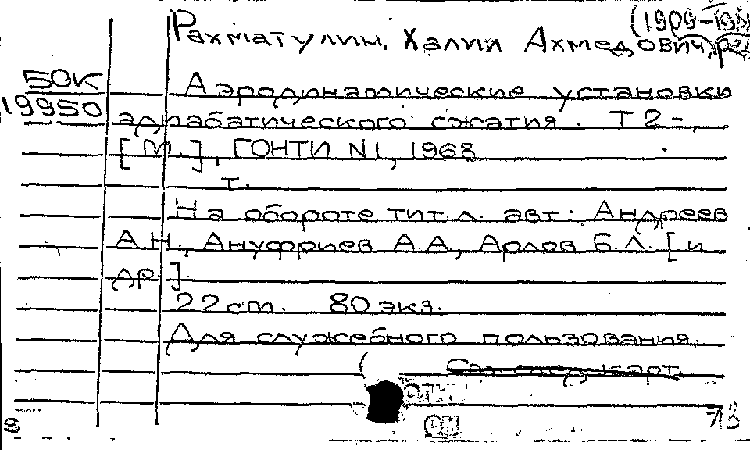 (1909-
Рахматулин, Халил Ахмедович,
50К
19950
Аэродинамические установки
адиабатического сжатия. Т 2-
[М.], ГОНТИ N1, 1968
т.
На обороте тит. л. авт: Андреев
А.Н., Ануфриев А А, Арлов Б.Л. [и
др]
22 cm. 80 экз.
Для служебного пользования.
См. след. карт.
8